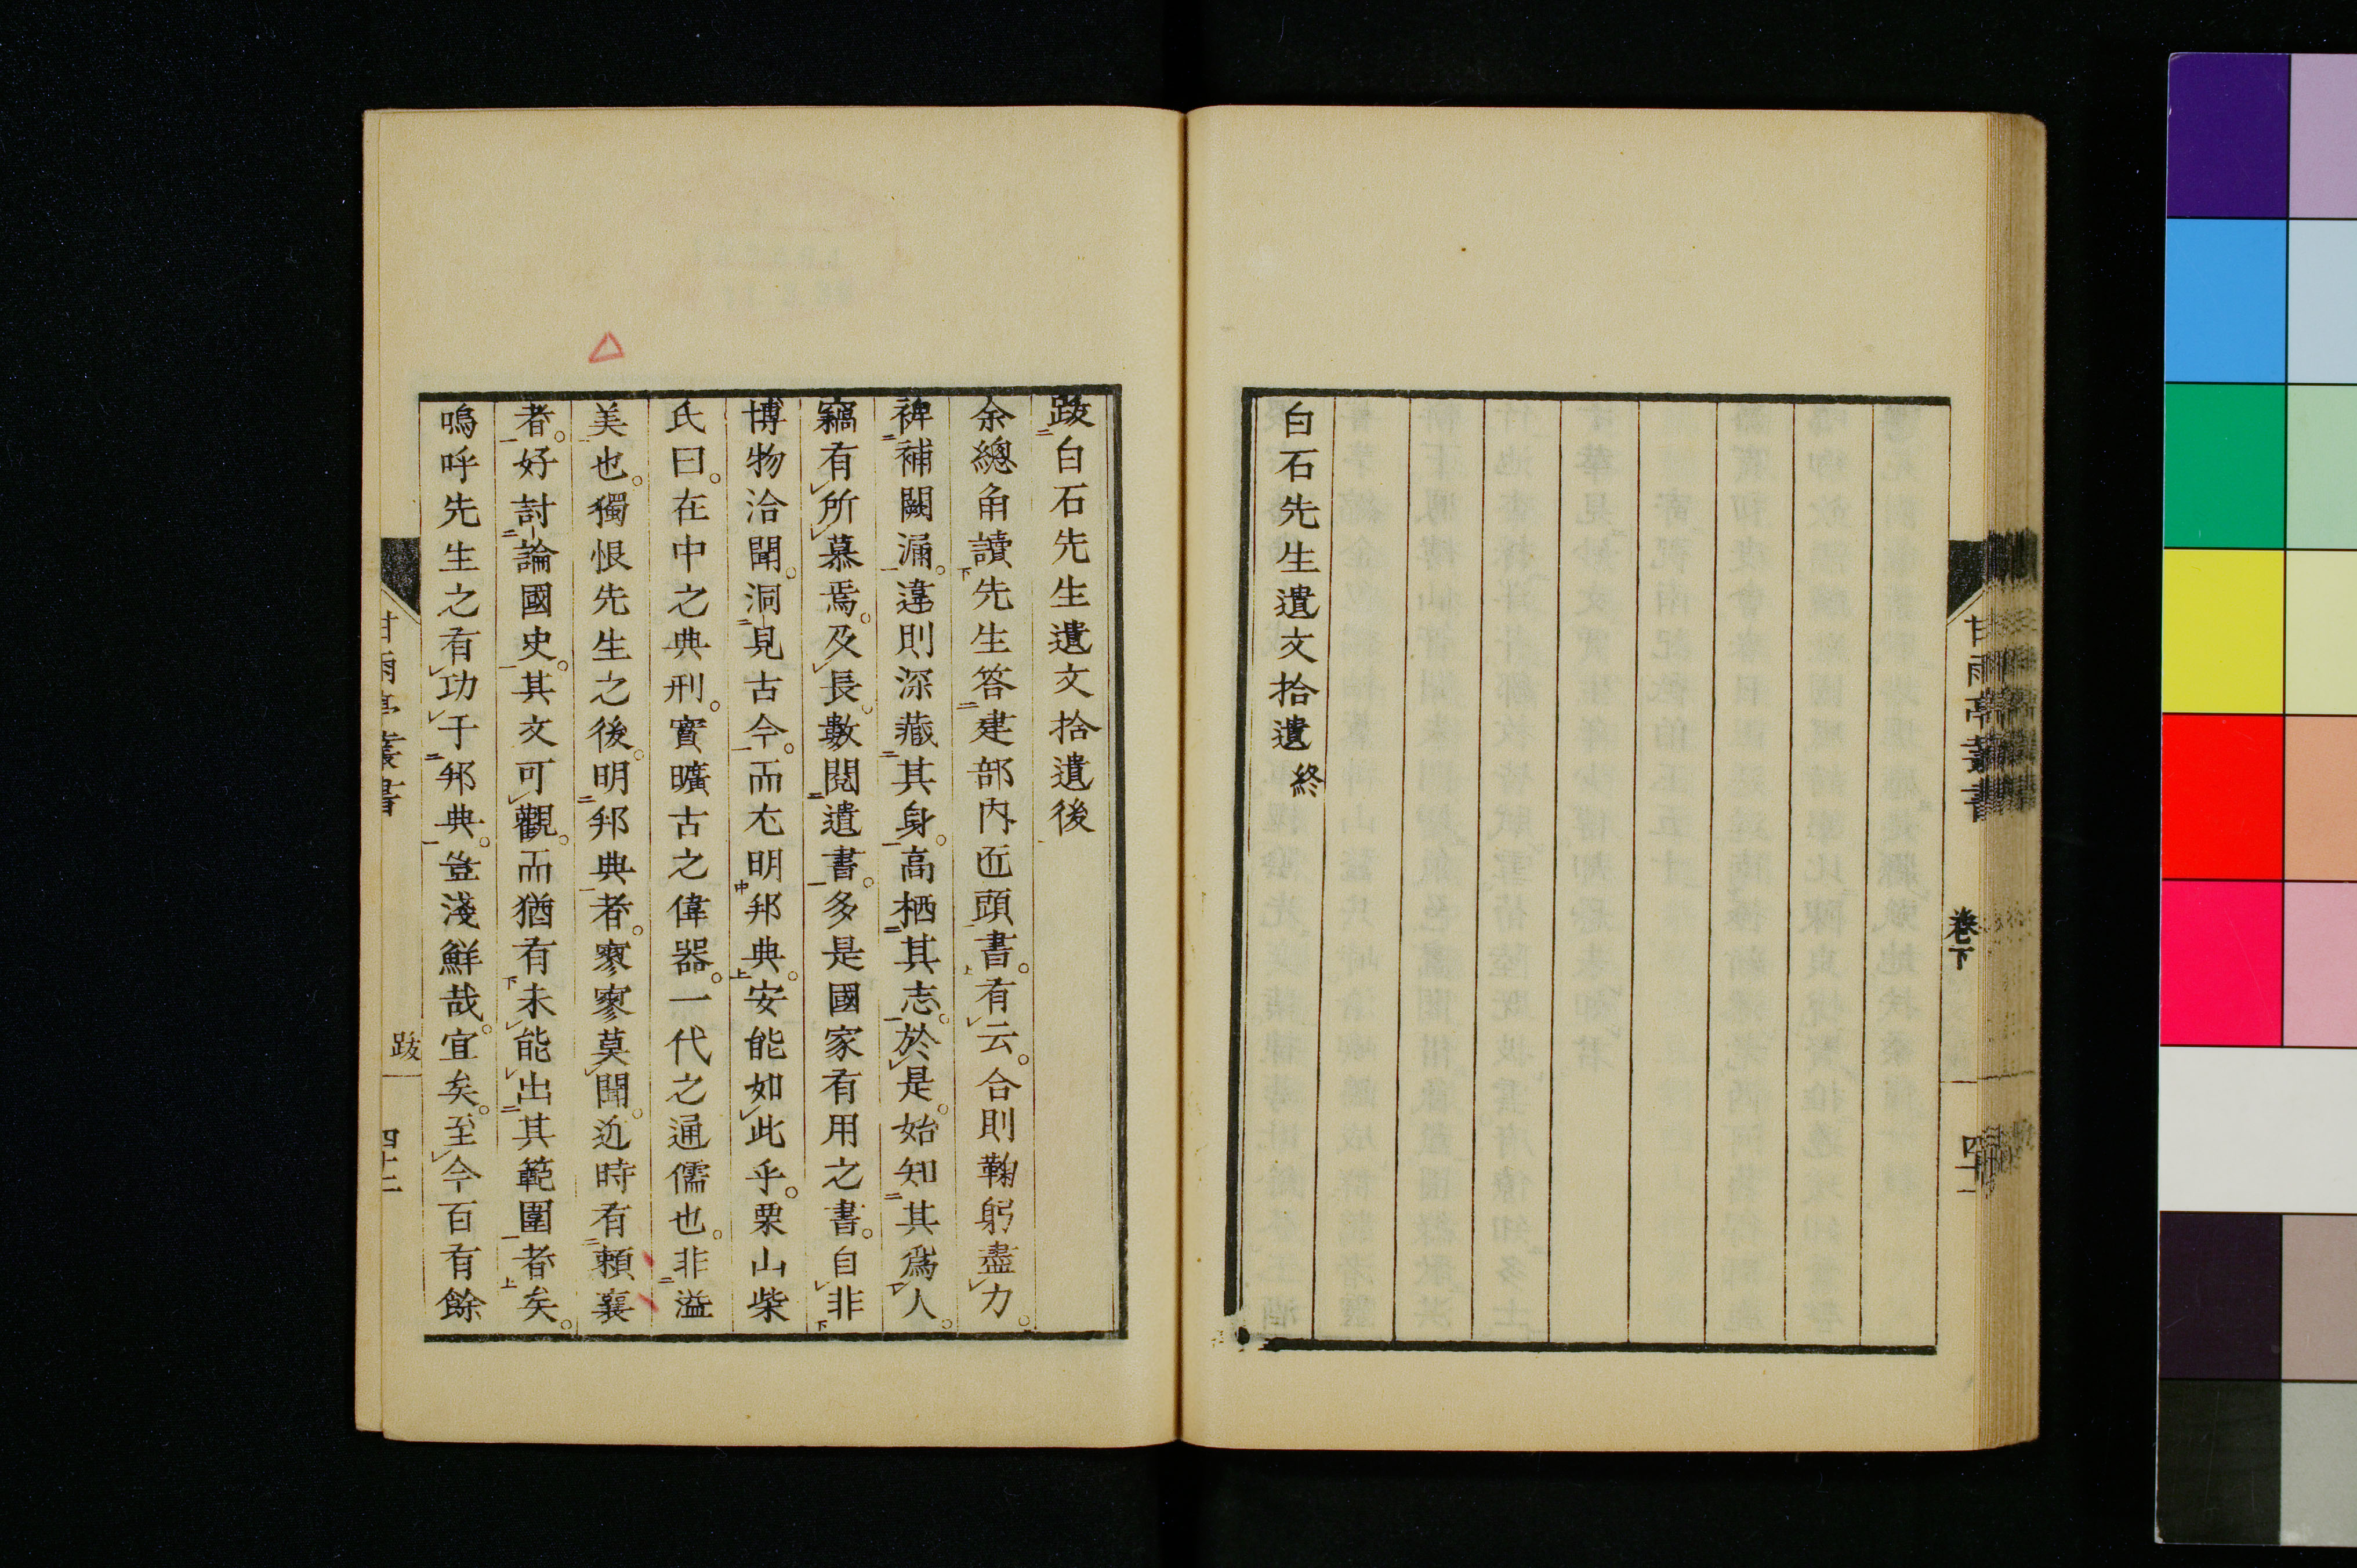 白石先生遺文拾遺終
甘雨亭叢書
卷下
跋白石先生遺文拾遺後
余總角讀先生答建部内匠頭書。有云。合則鞠躬盡力。
裨補闕漏。違則深藏其身。高栖其志。於是。始知其爲人。
竊有所慕焉。及長。數閱遺書。多是國家有用之書。自非
博物洽聞。洞見古今。而尤明邦典。安能如此乎。栗山柴
氏曰。在中之典刑。實曠古之偉器。一代之通儒也。非溢
美也。獨恨先生之後。明邦典者。寥寥莫聞。近時有賴襄
者。好討論國史。其文可觀。而猶有未能出其範圍者矣。
嗚呼先生之有功于邦典。豈淺鮮哉。宜矣。至今百有餘
甘雨亭叢書
跋
四十二